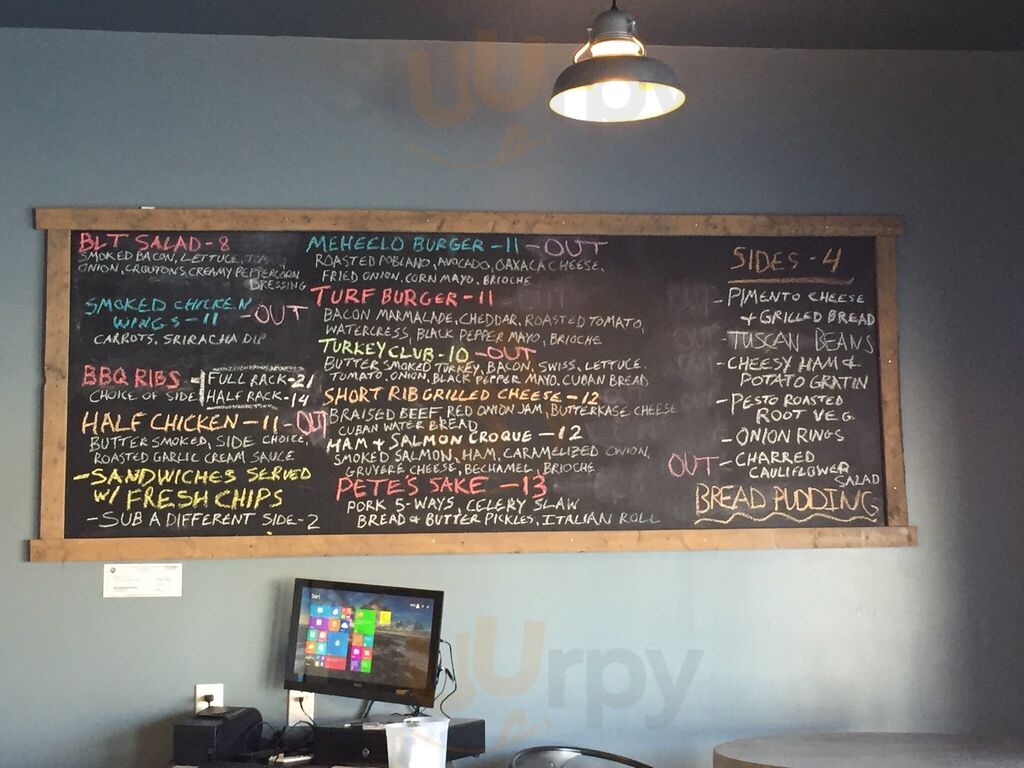 BLT SALAD - 8
SMOKED BACON, LETTUCE,
ONION, CROUTONS, CREAMY PEPPERCORN
DRESSING
SMOKED CHICKEN
WINGS - 11 - OUT
CARROTS, SRIRACHA DIP
BBQ RIBS - FULL RACK - 21
CHOICE OF SIDE HALF RACK - 14
HALF CHICKEN - 11 - OUT
BUTTER SMOKED, SIDE CHOICE,
ROASTED GARLIC CREAM SAUCE
- SANDWICHES SERVED
W/ FRESH CHIPS
- SUB A DIFFERENT SIDE - 2
MEHEELO BURGER - 11 - OUT
ROASTED POBLANO, AVOCADO, OAXACA CHEESE,
FRIED ONION, CORN MAYO, BRIOCHE
TURF BURGER - 11
BACON MARMALADE, CHEDDAR, ROASTED TOMATO,
WATERCRESS, BLACK PEPPER MAYO, BRIOCHE
TURKEY CLUB - 10 - OUT
BUTTER SMOKED TURKEY, BACON, SWISS, LETTUCE,
TOMATO, ONION, BLACK PEPPER MAYO, CUBAN BREAD
SHORT RIB GRILLED CHEESE - 12
BRAISED BEEF, RED ONION JAM, BUTTERKASE CHEESE
CUBAN WATER BREAD
HAM & SALMON CROQUE - 12
SMOKED SALMON, HAM, CARAMELIZED ONION,
GRUYERE CHEESE, BECHAMEL, BRIOCHE
PETE'S SAKE - 13
PORK 5-WAYS, CELERY SLAW
BREAD & BUTTER PICKLES, ITALIAN ROLL
SIDES - 4
- PIMENTO CHEESE
+ GRILLED BREAD
- TUSCAN BEANS
- CHEESY HAM &
POTATO GRATIN
- PESTO ROASTED
ROOT VEG
- ONION RINGS
OUT - CHARRED
CAULIFLOWER
SALAD
BREAD PUDDING
Start
Urpy
Urpy